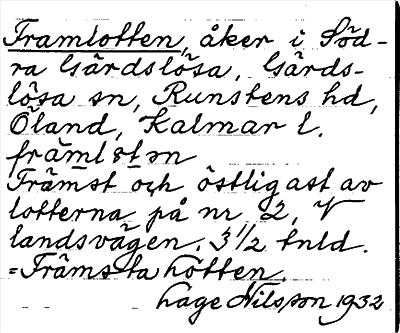 Framlotten, åker i Söd-
ra Gärdslösa, Gärds-
lösa sn, Runstens hd,
Öland, Kalmar l.
främlɵtɘn
Främst och östligast av
lotterna på nr 2, V
landsvägen. 3 1/2 tnld.
=Främsta lotten.
Lage Nilsson 1932